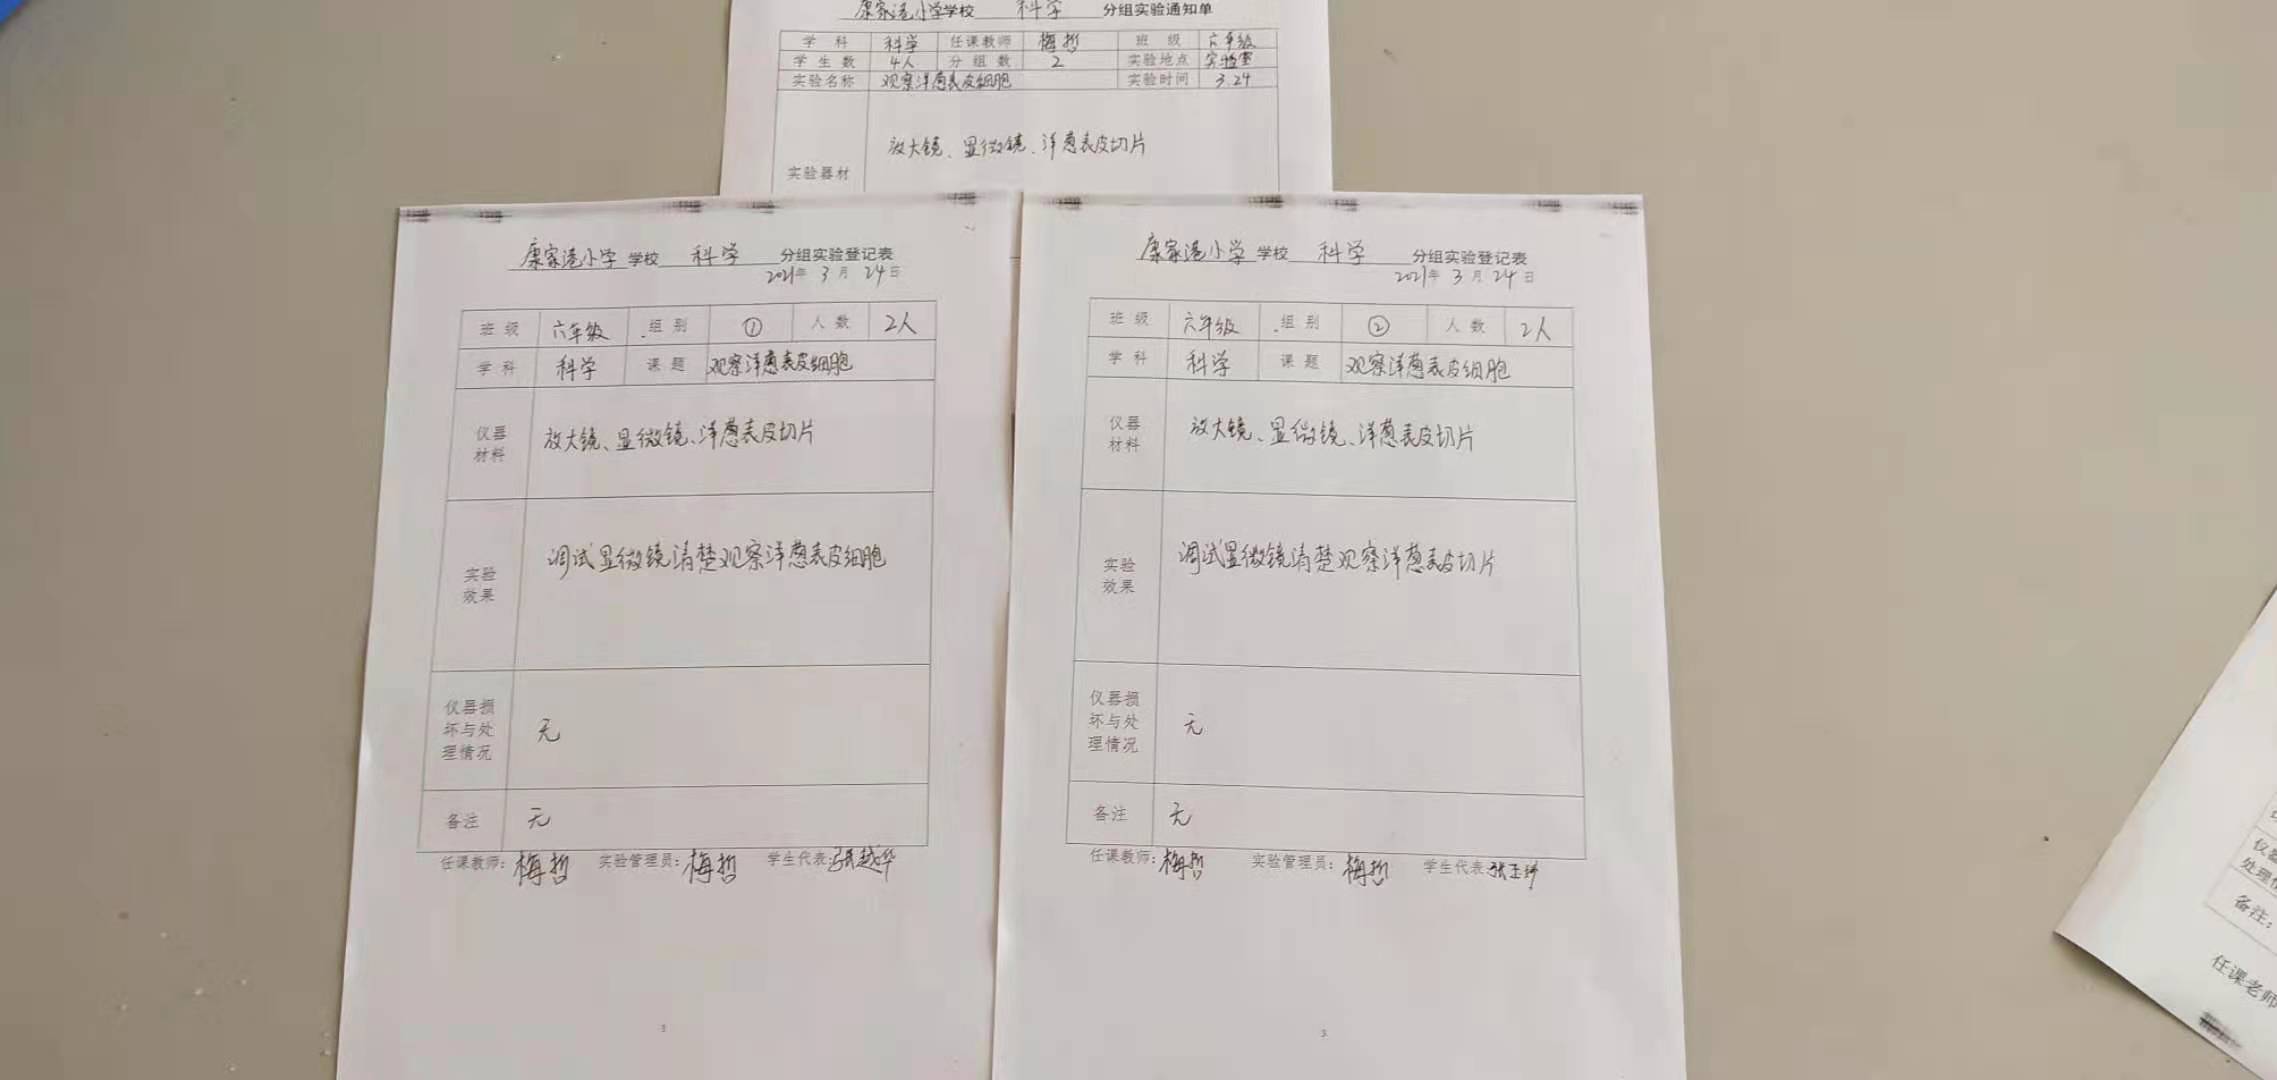 康家港小学学校 科学 分组实验通知单
学 科 科学 任课教师 梅哲 班 级 六年级
学 生 数 4人 分 组 数 2 实验地点 实验室
实验名称 观察洋葱表皮细胞 实验时间 3.24
放大镜、显微镜、洋葱表皮切片
实验器材
康家港小学学校 科学 分组实验登记表
2021年 3月 24日
班 级 六年级 组 别 ① 人 数 2人
学 科 科学 课 题 观察洋葱表皮细胞
仪器
材料
放大镜、显微镜、洋葱表皮切片
实验
效果
调试显微镜清楚观察洋葱表皮细胞
仪器损
坏与处
理情况
无
备注 无
任课教师：梅哲 实验管理员：梅哲 学生代表：张越华
3
康家港小学学校 科学 分组实验登记表
2021年 3月 24日
班 级 六年级 组 别 ② 人 数 2人
学 科 科学 课 题 观察洋葱表皮细胞
仪器
材料
放大镜、显微镜、洋葱表皮切片
实验
效果
调试显微镜清楚观察洋葱表皮切片
仪器损
坏与处
理情况
无
备注 无
任课教师：梅哲 实验管理员：梅哲 学生代表：张玉
3
仪器
处理
备注：
任课老师